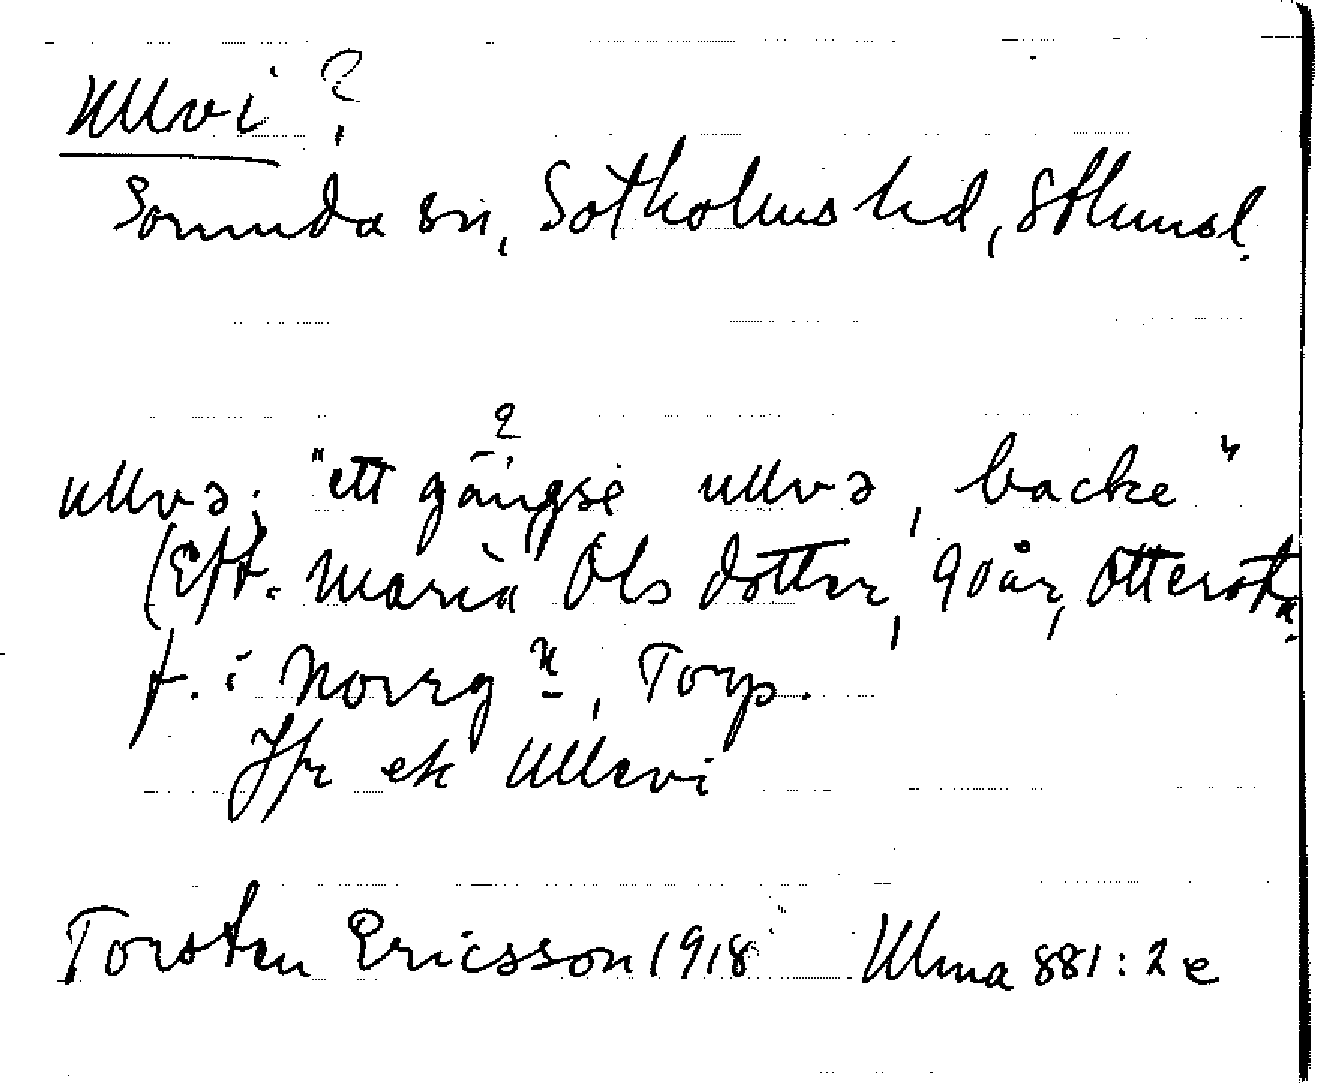 Ullvi ?
Sorunda sn, Sotholms hd, Sthmsl.
ullvə; "ett gängse ? ullvə, backe"
(Eft. Maria Ols dotter, 90 år, Ottersta,
f. i Norrg n, Torp.
Jfr ek Ullevi
Torsten Ericsson 1918 Ulma 881:2 e